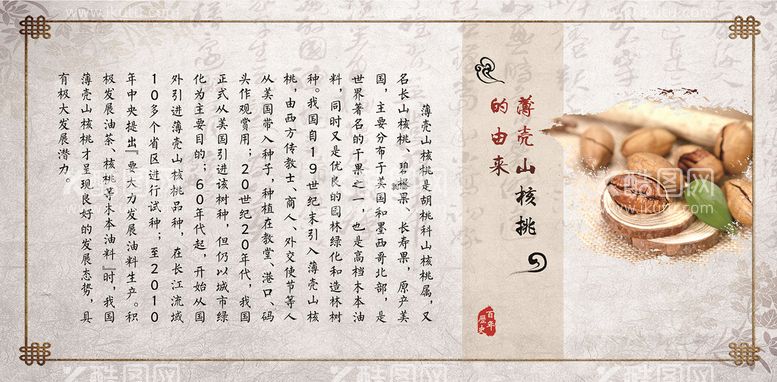 薄壳山核桃
的由来
百年歷史
薄壳山核桃是胡桃科山核桃属，又
名长山核桃、碧根果、长寿果，原产美
国，主要分布于美国和墨西哥北部，是
世界著名的干果之一，也是高档木本油
料，同时又是优良的园林绿化和造林树
种。我国自19世纪末引入薄壳山核
桃，由西方传教士、商人、外交使节等人
从美国带入种子，种植在教堂、港口、码
头作观赏用；20世纪20年代，我国
正式从美国引进该树种，但仍以城市绿
化为主要目的；60年代起，开始从国
外引进薄壳山核桃品种，在长江流域
10多个省区进行试种；至2010
年中央提出『要大力发展油料生产。积
极发展油茶、核桃等木本油料』时，我国
薄壳山核桃才呈现良好的发展态势，具
有极大发展潜力。
酷图网